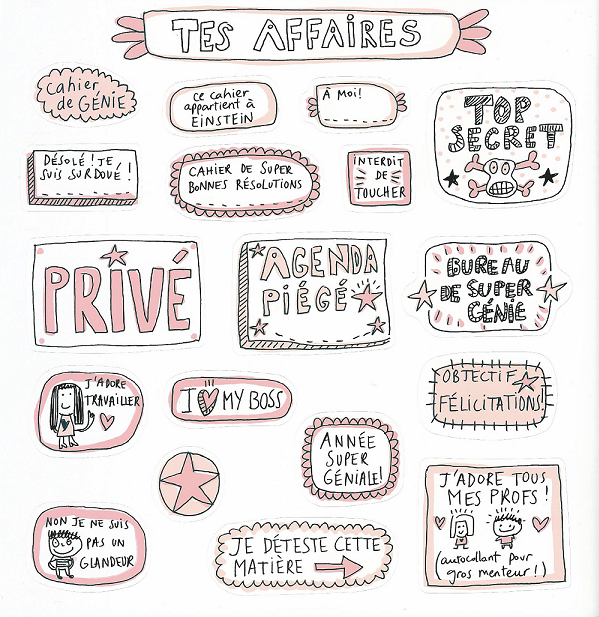 TES AFFAIRES
Cahier
de GÉNIE
CE CAHIER
appartient à
EINSTEIN
À MOI!
TOP
SECRET
DÉSOLÉ! JE
SUIS SURDOUÉ!
CAHIER DE SUPER
BONNES RÉSOLUTIONS
INTERDIT
DE
TOUCHER
PRIVÉ
AGENDA
PIÉGÉ
BUREAU
DE SUPER
GÉNIE
J'ADORE
TRAVAILLER
I MY BOSS
OBJECTIF
FÉLICITATIONS!
ANNÉE
SUPER
GÉNIALE!
J'ADORE TOUS
MES PROFS!
(autocollant pour
gros menteur!)
NON JE NE SUIS
PAS UN
GLANDEUR
JE DÉTESTE CETTE
MATIÈRE